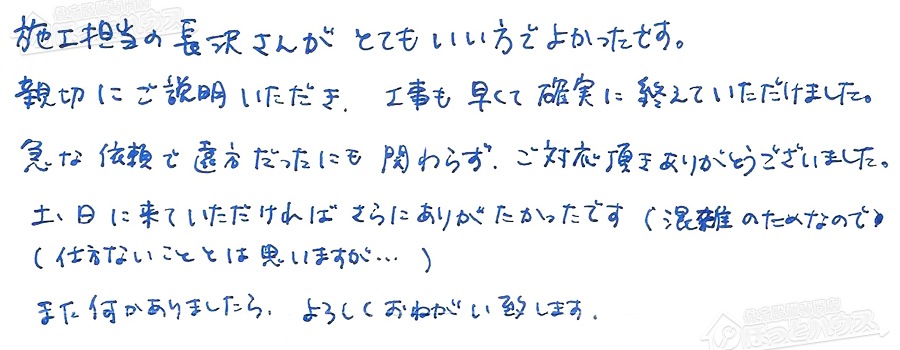 施工担当の長沢さんがとてもいい方でよかったです。
親切にご説明いただき、工事も早くて確実に終えていただけました。
急な依頼で遠方だったにも関わらず、ご対応頂きありがとうございました。
土、日に来ていただければさらにありがたかったです(混雑のためなので)
(仕方ないこととは思いますが…)
また何かありましたら、よろしくおねがい致します。